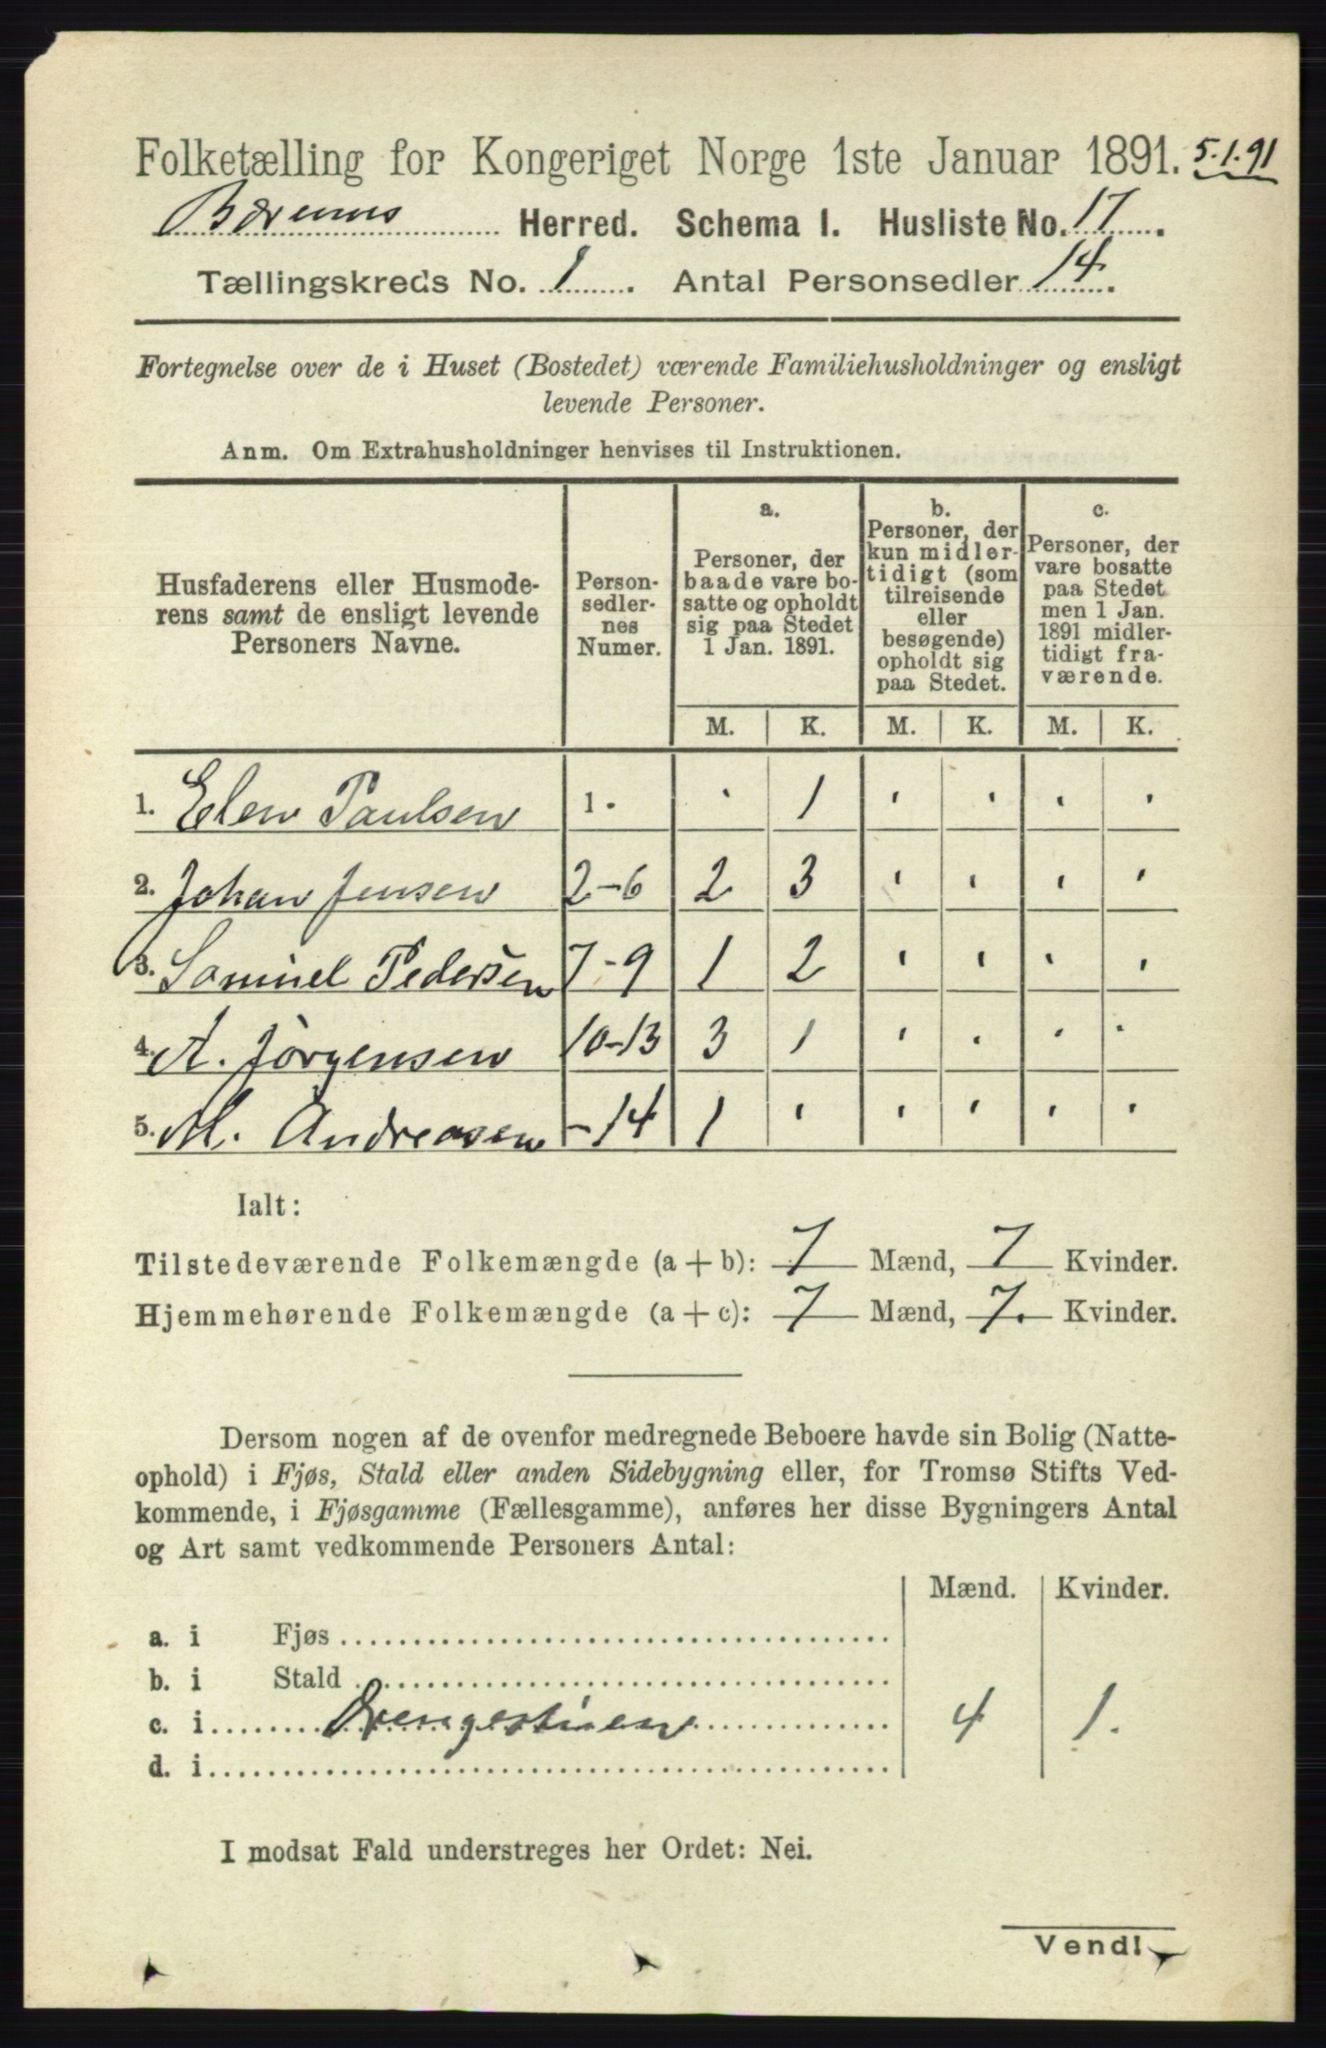 Folketælling for Kongeriget Norge 1ste Januar 1891. 5.1.91
Bærums Herred. Schema I. Husliste No. 17.
Tællingskreds No. 1. Antal Personsedler 14.
Fortegnelse over de i Huset (Bostedet) værende Familiehusholdninger og ensligt
levende Personer.
Anm. Om Extrahusholdninger henvises til Instruktionen.
Husfaderens eller Husmode-
rens samt de ensligt levende
Personers Navne.
Person-
sedler-
nes
Numer.
a.
Personer, der
baade vare bo-
satte og opholdt
sig paa Stedet
1 Jan. 1891.
b.
Personer, der
kun midler-
tidigt (som
tilreisende
eller
besøgende)
opholdt sig
paa Stedet.
c.
Personer, der
vare bosatte
paa Stedet
men 1 Jan.
1891 midler-
tidigt fra-
værende.
M. K. M. K. M. K.
1. Elen Paulsen 1. 1
2. Johan Jensen 2-6 2 3
3. Samuel Pedersen 7-9 1 2
4. A. Jörgensen 10-13 3 1
5. M. Andreasen -14 1
Ialt:
Tilstedeværende Folkemængde (a + b): 7 Mænd, 7 Kvinder.
Hjemmehørende Folkemængde (a + c): 7 Mænd, 7. Kvinder.
Dersom nogen af de ovenfor medregnede Beboere havde sin Bolig (Natte-
ophold) i Fjøs, Stald eller anden Sidebygning eller, for Tromsø Stifts Ved-
kommende, i Fjøsgamme (Fællesgamme), anføres her disse Bygningers Antal
og Art samt vedkommende Personers Antal:
Mænd. Kvinder.
a. i Fjøs
b. i Stald
c. i Drengestuen 4 1.
d. i
I modsat Fald understreges her Ordet: Nei.
Vend!